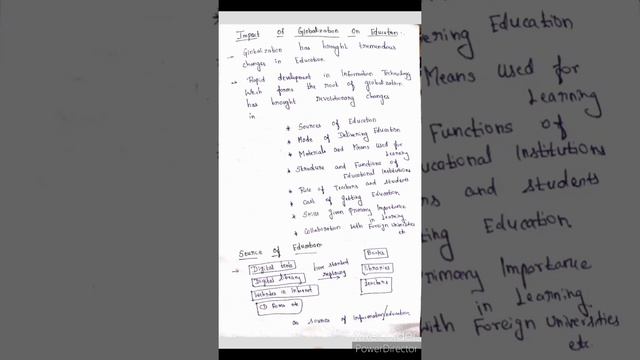 Impact Of Globalization On Education.
- Globalization has brought tremendous
changes in Education
- Rapid development in Information Technology
Which forms the root of globalization
has brought revolutionary changes
in
* Sources of Education
* Mode of Delivering Education
* Materials and Means used for
Learning
* Structure and Functions of
Educational Institutions
* Role of Teachers and students
* Cost of Getting Education
* given Primary Importance
in Learning
* Collaboration with Foreign Universities
etc
Source of Education
Digital texts
Digital library
in Internet
CD Roms etc
have started
replacing
Books
libraries
Teachers
as source of information/education
PowerDirector
ering Education
Means used for
Learning
Functions of
ucational Institutions
ns and students
ting Education
Primary Importance
in Learning
with Foreign Universities
etc.